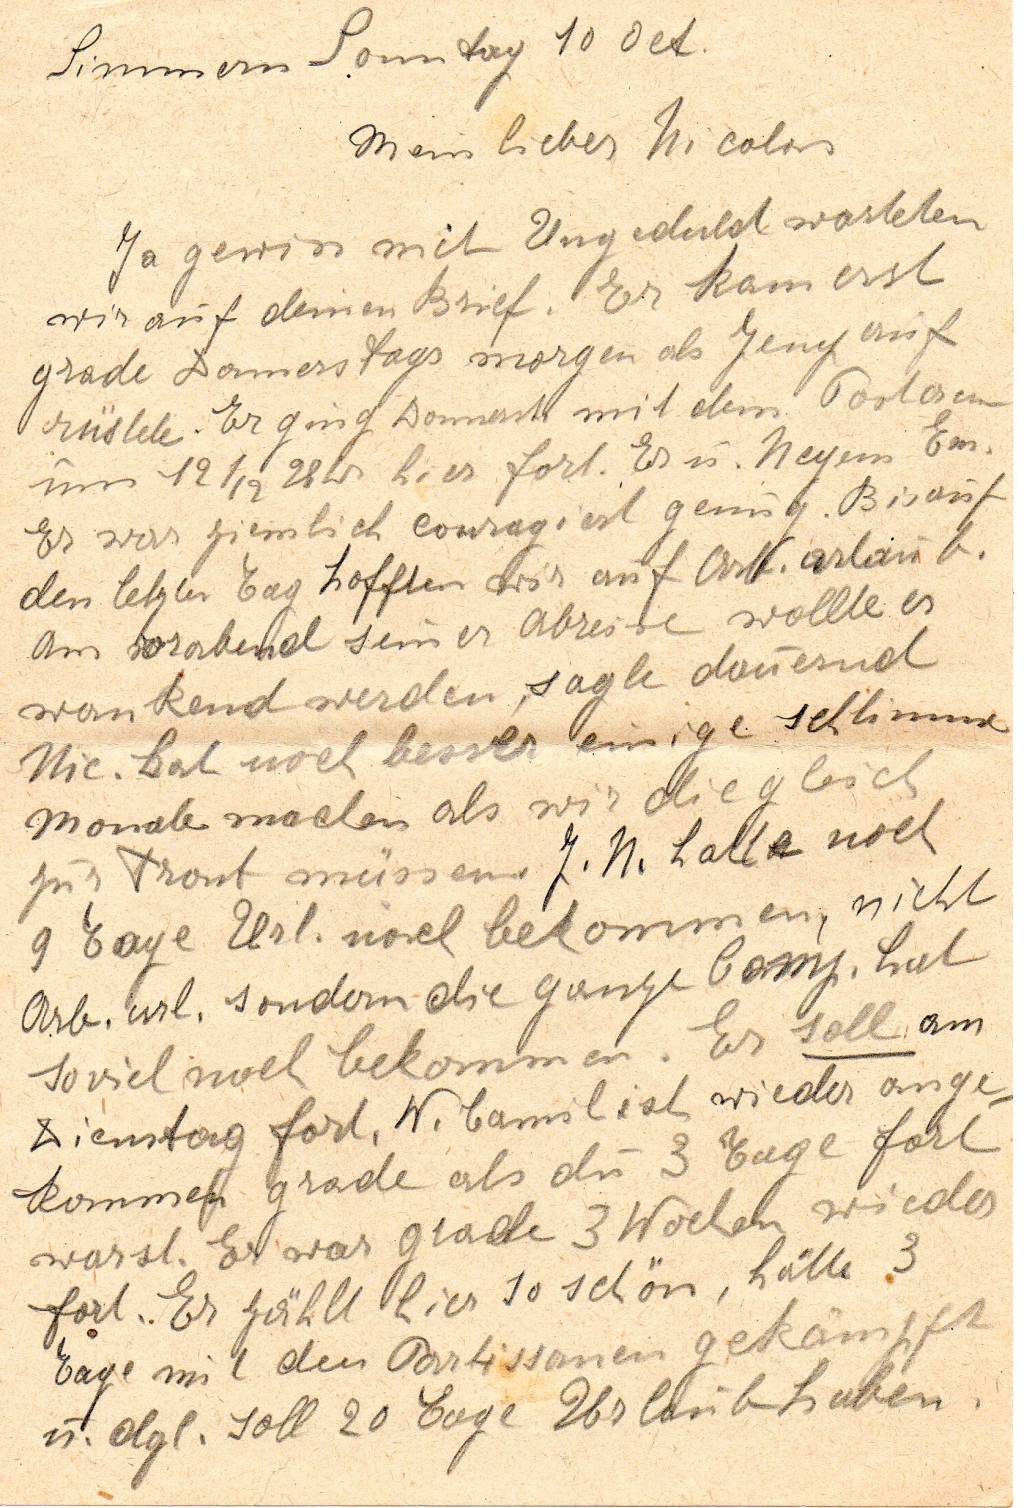 Simmern Sonntag 10 Oct.
Mein lieber Nicolas
Ja gewiss mit Ungeduld warteten
wir auf deinen Brief. Er kam erst
grade Donnerstags morgen als Jeny auf
rüstete. Er ging Donnerst. mit dem
um 12 1/2 Uhr hier fort. Er u. Neyens Em.
Er war ziemlich couragiert genug. Bis auf
den letzten Tag hofften wir auf Arb. urlaub.
Am vorabend seiner Abreise wollte er
wankend werden, sagte dauernd
Nic. hat noch besser einige schlimme
Monate machen als wir die gleich
zur Front müssen. J. N. hatte noch
9 Tage Url. noch bekommen, nicht
Arb. url. sondern die ganze Comp. hat
soviel noch bekommen. Er soll am
Dienstag fort. N. Camil ist wieder ange-
kommen grade als du 3 Tage fort
warst. Er war grade 3 Wochen wieder
fort. Er zählt hier so schön, hätte 3
Tage mit den Partissanen gekämpft
u. dgl. soll 20 Tage Urlaub haben.